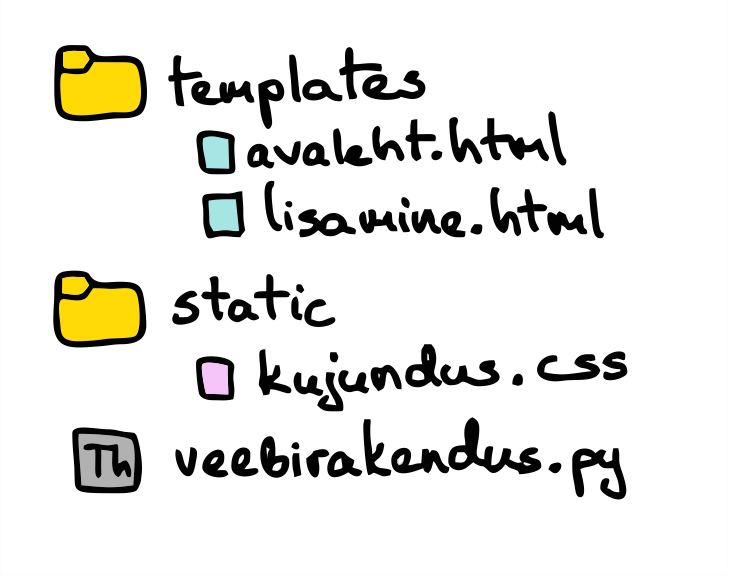 templates
avaleht.html
lisamine.html
static
kujundus.css
Th veebirakendus.py